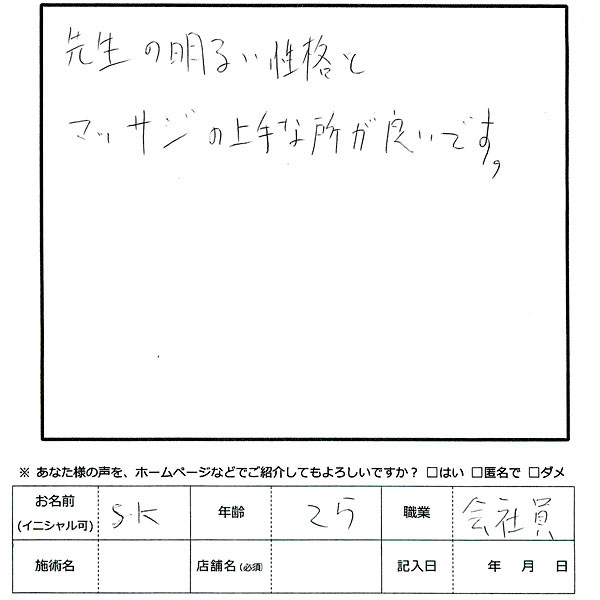 先生の明るい性格と
マッサジの上手な所が良いです。
※ あなた様の声を、ホームページなどでご紹介してもよろしいですか? □はい □匿名で □ダメ
お名前 (イニシャル可) S.K 年齢 25 職業 会社員
施術名 店舗名(必須) 記入日 年 月 日